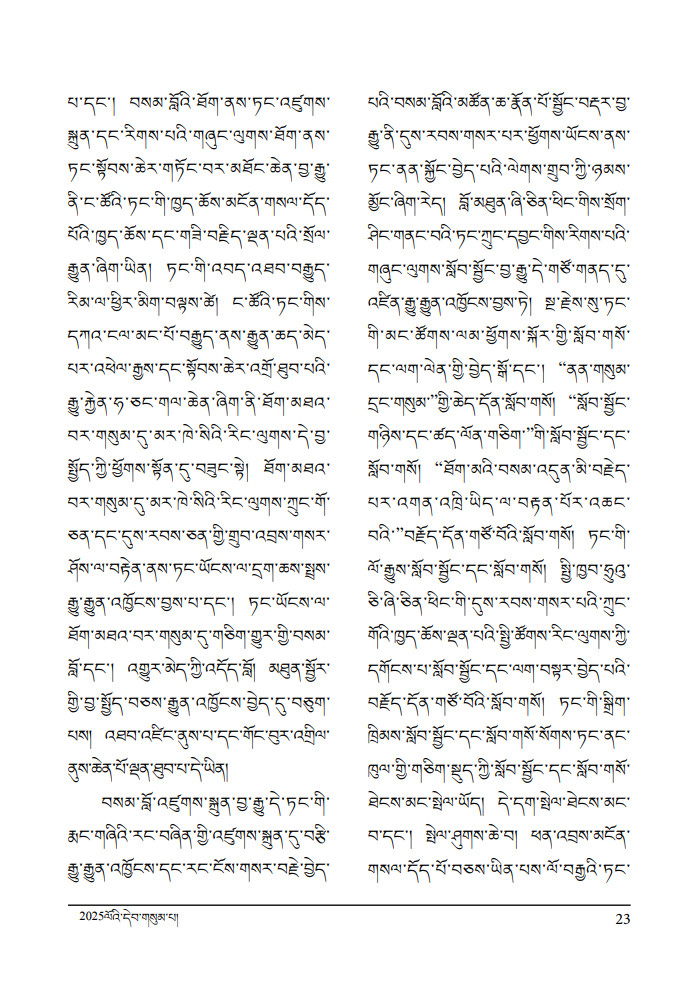 པ་དང་། བསམ་བློའི་ཐོག་ནས་ཏང་འཛུགས་
སྐྲུན་དང་རིགས་པའི་གཞུང་ལུགས་ཐོག་ནས་
ཏང་སྟོབས་ཆེར་གཏོང་བར་མཐོང་ཆེན་བྱ་རྒྱུ་
ནི་ང་ཚོའི་ཏང་གི་ཁྱད་ཆོས་མངོན་གསལ་དོད་
པོའི་ཁྱད་ཆོས་དང་གཟི་བརྗིད་ལྡན་པའི་སྲོལ་
རྒྱུན་ཞིག་ཡིན། ཏང་གི་འབད་འཐབ་བརྒྱུད་
རིམ་ལ་ཕྱིར་མིག་བལྟས་ཚེ། ང་ཚོའི་ཏང་གིས་
དཀའ་ངལ་མང་པོ་བརྒྱུད་ནས་རྒྱུན་ཆད་མེད་
པར་འཕེལ་རྒྱས་དང་སྟོབས་ཆེར་འགྲོ་ཐུབ་པའི་
རྒྱུ་རྐྱེན་ཧ་ཅང་གལ་ཆེན་ཞིག་ནི་ཐོག་མཐའ་
བར་གསུམ་དུ་མར་ཁེ་སིའི་རིང་ལུགས་དེ་བྱ་
སྤྱོད་ཀྱི་ཕྱོགས་སྟོན་དུ་བཟུང་སྟེ། ཐོག་མཐའ་
བར་གསུམ་དུ་མར་ཁེ་སིའི་རིང་ལུགས་ཀྲུང་གོ་
ཅན་དང་དུས་རབས་ཅན་གྱི་གྲུབ་འབྲས་གསར་
ཤོས་ལ་བརྟེན་ནས་ཏང་ཡོངས་ལ་དྲག་ཆས་སྤྲས་
རྒྱུ་རྒྱུན་འཁྱོངས་བྱས་པ་དང་། ཏང་ཡོངས་ལ་
ཐོག་མཐའ་བར་གསུམ་དུ་གཅིག་གྱུར་གྱི་བསམ་
བློ་དང་། འགྱུར་མེད་ཀྱི་འདོད་བློ། མཐུན་སྦྱོར་
གྱི་བྱ་སྤྱོད་བཅས་རྒྱུན་འཁྱོངས་བྱེད་དུ་བཅུག་
པས། འཐབ་འཛིང་ནུས་པ་དང་གོང་བུར་འགྲིལ་
ནུས་ཆེན་པོ་ལྡན་ཐུབ་པ་དེ་ཡིན།
བསམ་བློ་འཛུགས་སྐྲུན་བྱ་རྒྱུ་དེ་ཏང་གི་
རྨང་གཞིའི་རང་བཞིན་གྱི་འཛུགས་སྐྲུན་དུ་བརྩི་
རྒྱུ་རྒྱུན་འཁྱོངས་དང་རང་ངོས་གསར་བརྗེ་བྱེད་
པའི་བསམ་བློའི་མཚོན་ཆ་རྣོན་པོ་སྦྱོང་བརྡར་བྱ་
རྒྱུ་ནི་དུས་རབས་གསར་པར་ཕྱོགས་ཡོངས་ནས་
ཏང་ནན་སྐྱོང་བྱེད་པའི་ལེགས་གྲུབ་ཀྱི་ཉམས་
མྱོང་ཞིག་རེད། བློ་མཐུན་ཞི་ཅིན་ཕིང་གིས་སྲོག་
ཤིང་གནང་བའི་ཏང་ཀྲུང་དབྱང་གིས་རིགས་པའི་
གཞུང་ལུགས་སློབ་སྦྱོང་བྱ་རྒྱུ་དེ་གཙོ་གནད་དུ་
འཛིན་རྒྱུ་རྒྱུན་འཁྱོངས་བྱས་ཏེ། སྔ་རྗེས་སུ་ཏང་
གི་མང་ཚོགས་ལམ་ཕྱོགས་སྐོར་གྱི་སློབ་གསོ་
དང་ལག་ལེན་གྱི་བྱེད་སྒོ་དང་། “ནན་གསུམ་
དྲང་གསུམ་”གྱི་ཆེད་དོན་སློབ་གསོ། “སློབ་སྦྱོང་
གཉིས་དང་ཚད་ལོན་གཅིག་”གི་སློབ་སྦྱོང་དང་
སློབ་གསོ། “ཐོག་མའི་བསམ་འདུན་མི་བརྗེད་
པར་འགན་འཁྲི་ཡིད་ལ་བརྟན་པོར་འཆང་
བའི་”བརྗོད་དོན་གཙོ་བོའི་སློབ་གསོ། ཏང་གི་
ལོ་རྒྱུས་སློབ་སྦྱོང་དང་སློབ་གསོ། སྤྱི་ཁྱབ་ཧྲུའུ་
ཅི་ཞི་ཅིན་ཕིང་གི་དུས་རབས་གསར་པའི་ཀྲུང་
གོའི་ཁྱད་ཆོས་ལྡན་པའི་སྤྱི་ཚོགས་རིང་ལུགས་ཀྱི་
དགོངས་པ་སློབ་སྦྱོང་དང་ལག་བསྟར་བྱེད་པའི་
བརྗོད་དོན་གཙོ་བོའི་སློབ་གསོ། ཏང་གི་སྒྲིག་
ཁྲིམས་སློབ་སྦྱོང་དང་སློབ་གསོ་སོགས་ཏང་ནང་
ཁུལ་གྱི་གཅིག་སྡུད་ཀྱི་སློབ་སྦྱོང་དང་སློབ་གསོ་
ཐེངས་མང་སྤེལ་ཡོད། དེ་དག་སྤེལ་ཐེངས་མང་
བ་དང་། སྤེལ་ཤུགས་ཆེ་བ། ཕན་འབྲས་མངོན་
གསལ་དོད་པོ་བཅས་ཡིན་པས་ལོ་བརྒྱའི་ཏང་
2025ལོའི་དེབ་གསུམ་པ།
23